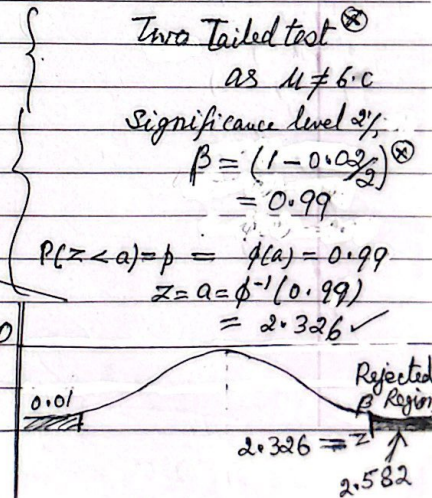 Two Tailed test ⊗
as μ ≠ 6.0
Significance level 2%
β = (1 - 0.02/2) ⊗
= 0.99
P(Z < a) = p = ϕ(a) = 0.99
Z = a = ϕ⁻¹(0.99)
= 2.326 ✓
0.01
Rejected
β Region
2.326 = Z
2.582